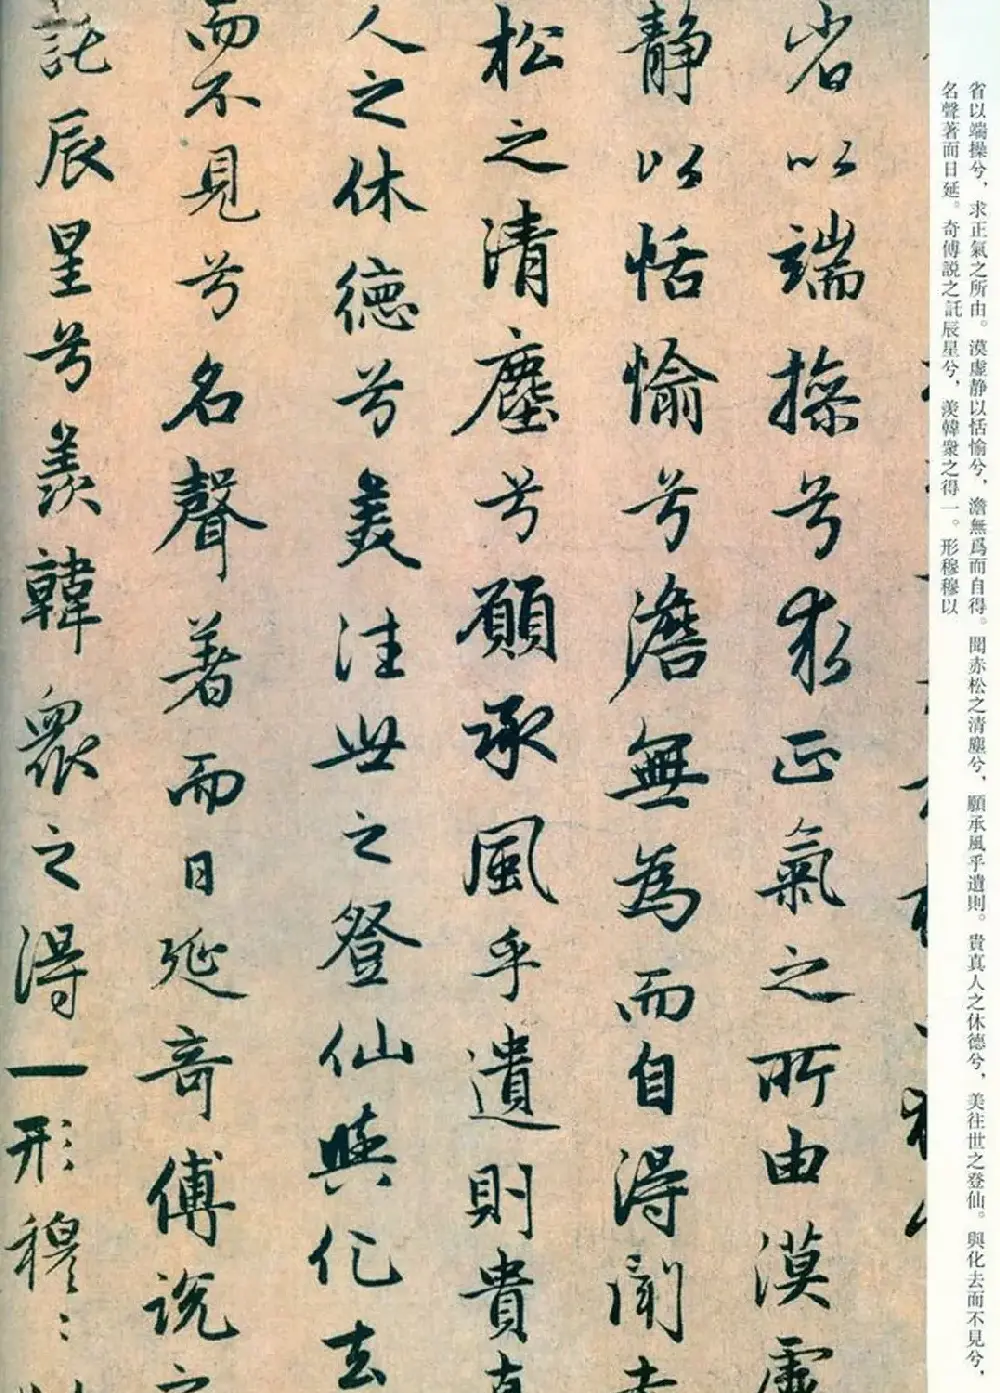 省以端操兮，求正氣之所由。漠虛静以恬愉兮，澹無爲而自得。聞赤松之清塵兮，願承風乎遺則。貴真人之休德兮，美往世之登仙。與化去而不見兮，
名聲著而日延。奇傅説之託辰星兮，羨韓衆之得一。形穆穆以
省以端操兮求正氣之所由漠虛
静以恬愉兮澹無為而自得聞赤
松之清塵兮願承風乎遺則貴真
人之休德兮美往世之登仙與化去
而不見兮名聲著而日延奇傅說之
託辰星兮羨韓衆之得一形穆〻